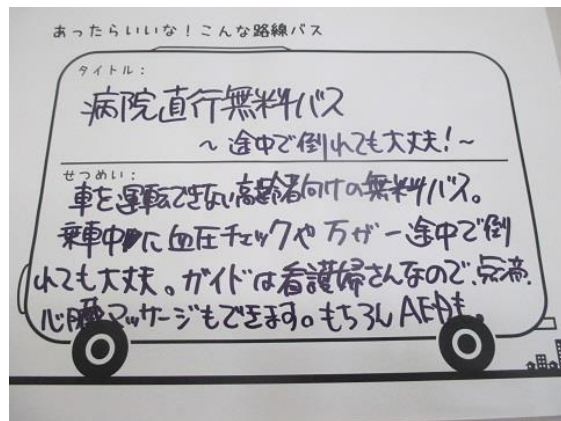 あったらいいな！こんな路線バス
タイトル：
病院直行無料バス
～途中で倒れても大丈夫！～
せつめい：
車を運転できない高齢者向けの無料バス。
乗車中に血圧チェックや万が一途中で倒
れても大丈夫。ガイドは看護婦さんなので、点滴、
心臓マッサージもできます。もちろんAEDも。